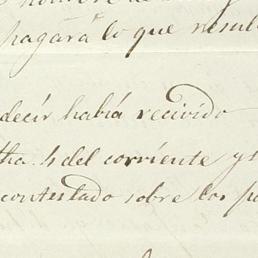 pagará lo que resul
decir había recivido
tha. 4 del corriente y s
contestado sobre los p